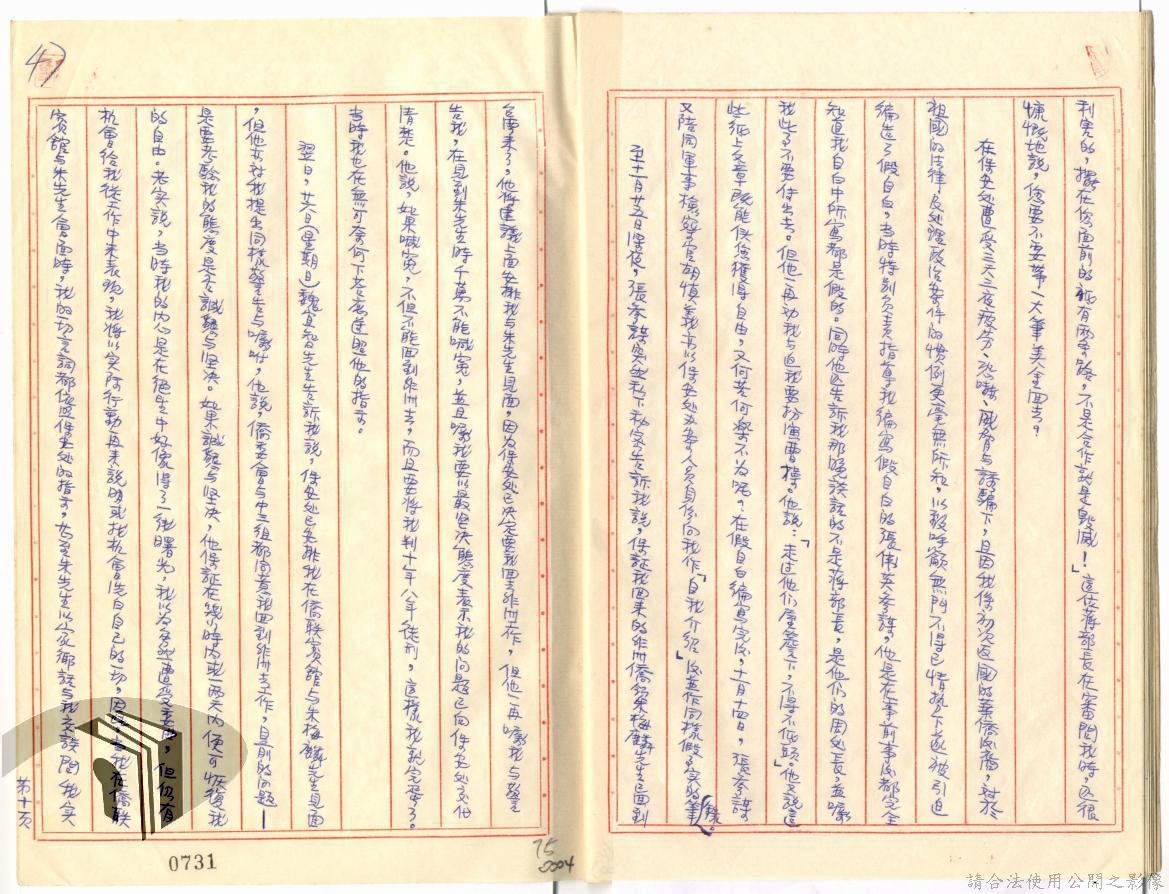 利害的，擺在您面前的祇有兩條路，不是合作就是毀滅！」這位蔣部長在審問我時，也很
慷慨地說，您要不要幹一大事業全回去？
在保安处遭受三天三夜疲劳、恐嚇、威脅与誘騙下，且因我係初次返國的華僑，对於
祖國的法律，及处理政治案件的慣例更毫無所知，以致呼籲無門不得已情勢下遂被引迫
編造了假自白，当時特別負責指導我編寫假自白的張偉英參謀。他是在事前事後都完全
知道我自白中所寫都是假的。同時他也告訴我那晚談話的不是蔣部長，是他们的周处長，並囑
我此事不要傳出去。但他一再劝我与迫我要扮演曹操。他說：「走过他们屋簷下，不得不低頭。」他又說這
些紙上文章既能使您獲得自由，又何苦何樂不為呢？在假自白編寫完後，十一月十四日，張參謀
又陪同軍事檢察官胡慎義亦以保安处办案人員身份向我作「自我介紹」後並作同樣假事实的筆錄。
至十一月廿五日深夜，張參謀突然私下秘密告訴我說，保証我回來的非洲僑領朱梅麟先生已回到
台灣來了，他將建議上面安排我与朱先生見面，因为保安处已决定要我回去非洲工作，但他一再囑我与警
告我，在見到朱先生時千萬不能喊冤，並且囑我要以最堅决態度表示我的问題已向保安处交代
清楚。他說，如果喊冤，不但不能回到非洲去，而且要將我判十年八年徒刑，這樣我就完蛋了。
当時我也在無可奈何下答應遵照他的指示。
翌日，廿六日（星期日）魏毅生先生告訴我說，保安处已安排我在僑联賓館与朱梅麟先生見面
，但他亦对我提出同樣警告与囑咐，他說，僑委會与中三組都同意我回到非洲去工作，目前的问題—
是要考驗我的態度是否誠懇与坚决。如果誠懇与坚决，他保証在幾小時內或一兩天內便可恢復我
的自由。老实說，当時我的內心是在絕望中好像得了一線曙光，我以为虽然遭受委屈，但仍有
机會給我從工作中來表現，我將以实际行動再來說明或找机會洗白自己的一切，因此当我在僑联
賓館与朱先生會面時，我的一切言詞都依照保安处的指示，甚至朱先生以家鄉話与我交談問我实
第十一页
47
0731
75
0004
請合法使用公開之影像